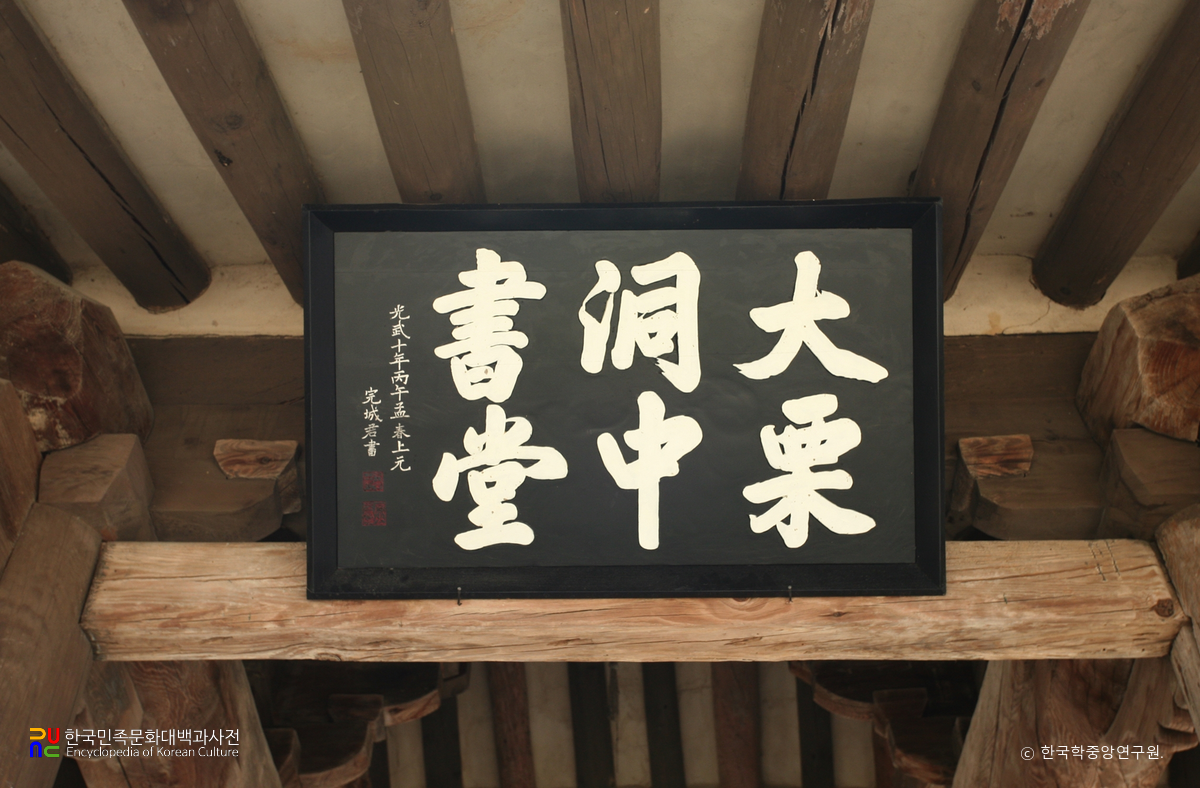 大栗
洞中
書堂
光武十年丙午孟春上元
完城君書
한국민족문화대백과사전
Encyclopedia of Korean Culture
ⓒ 한국학중앙연구원.